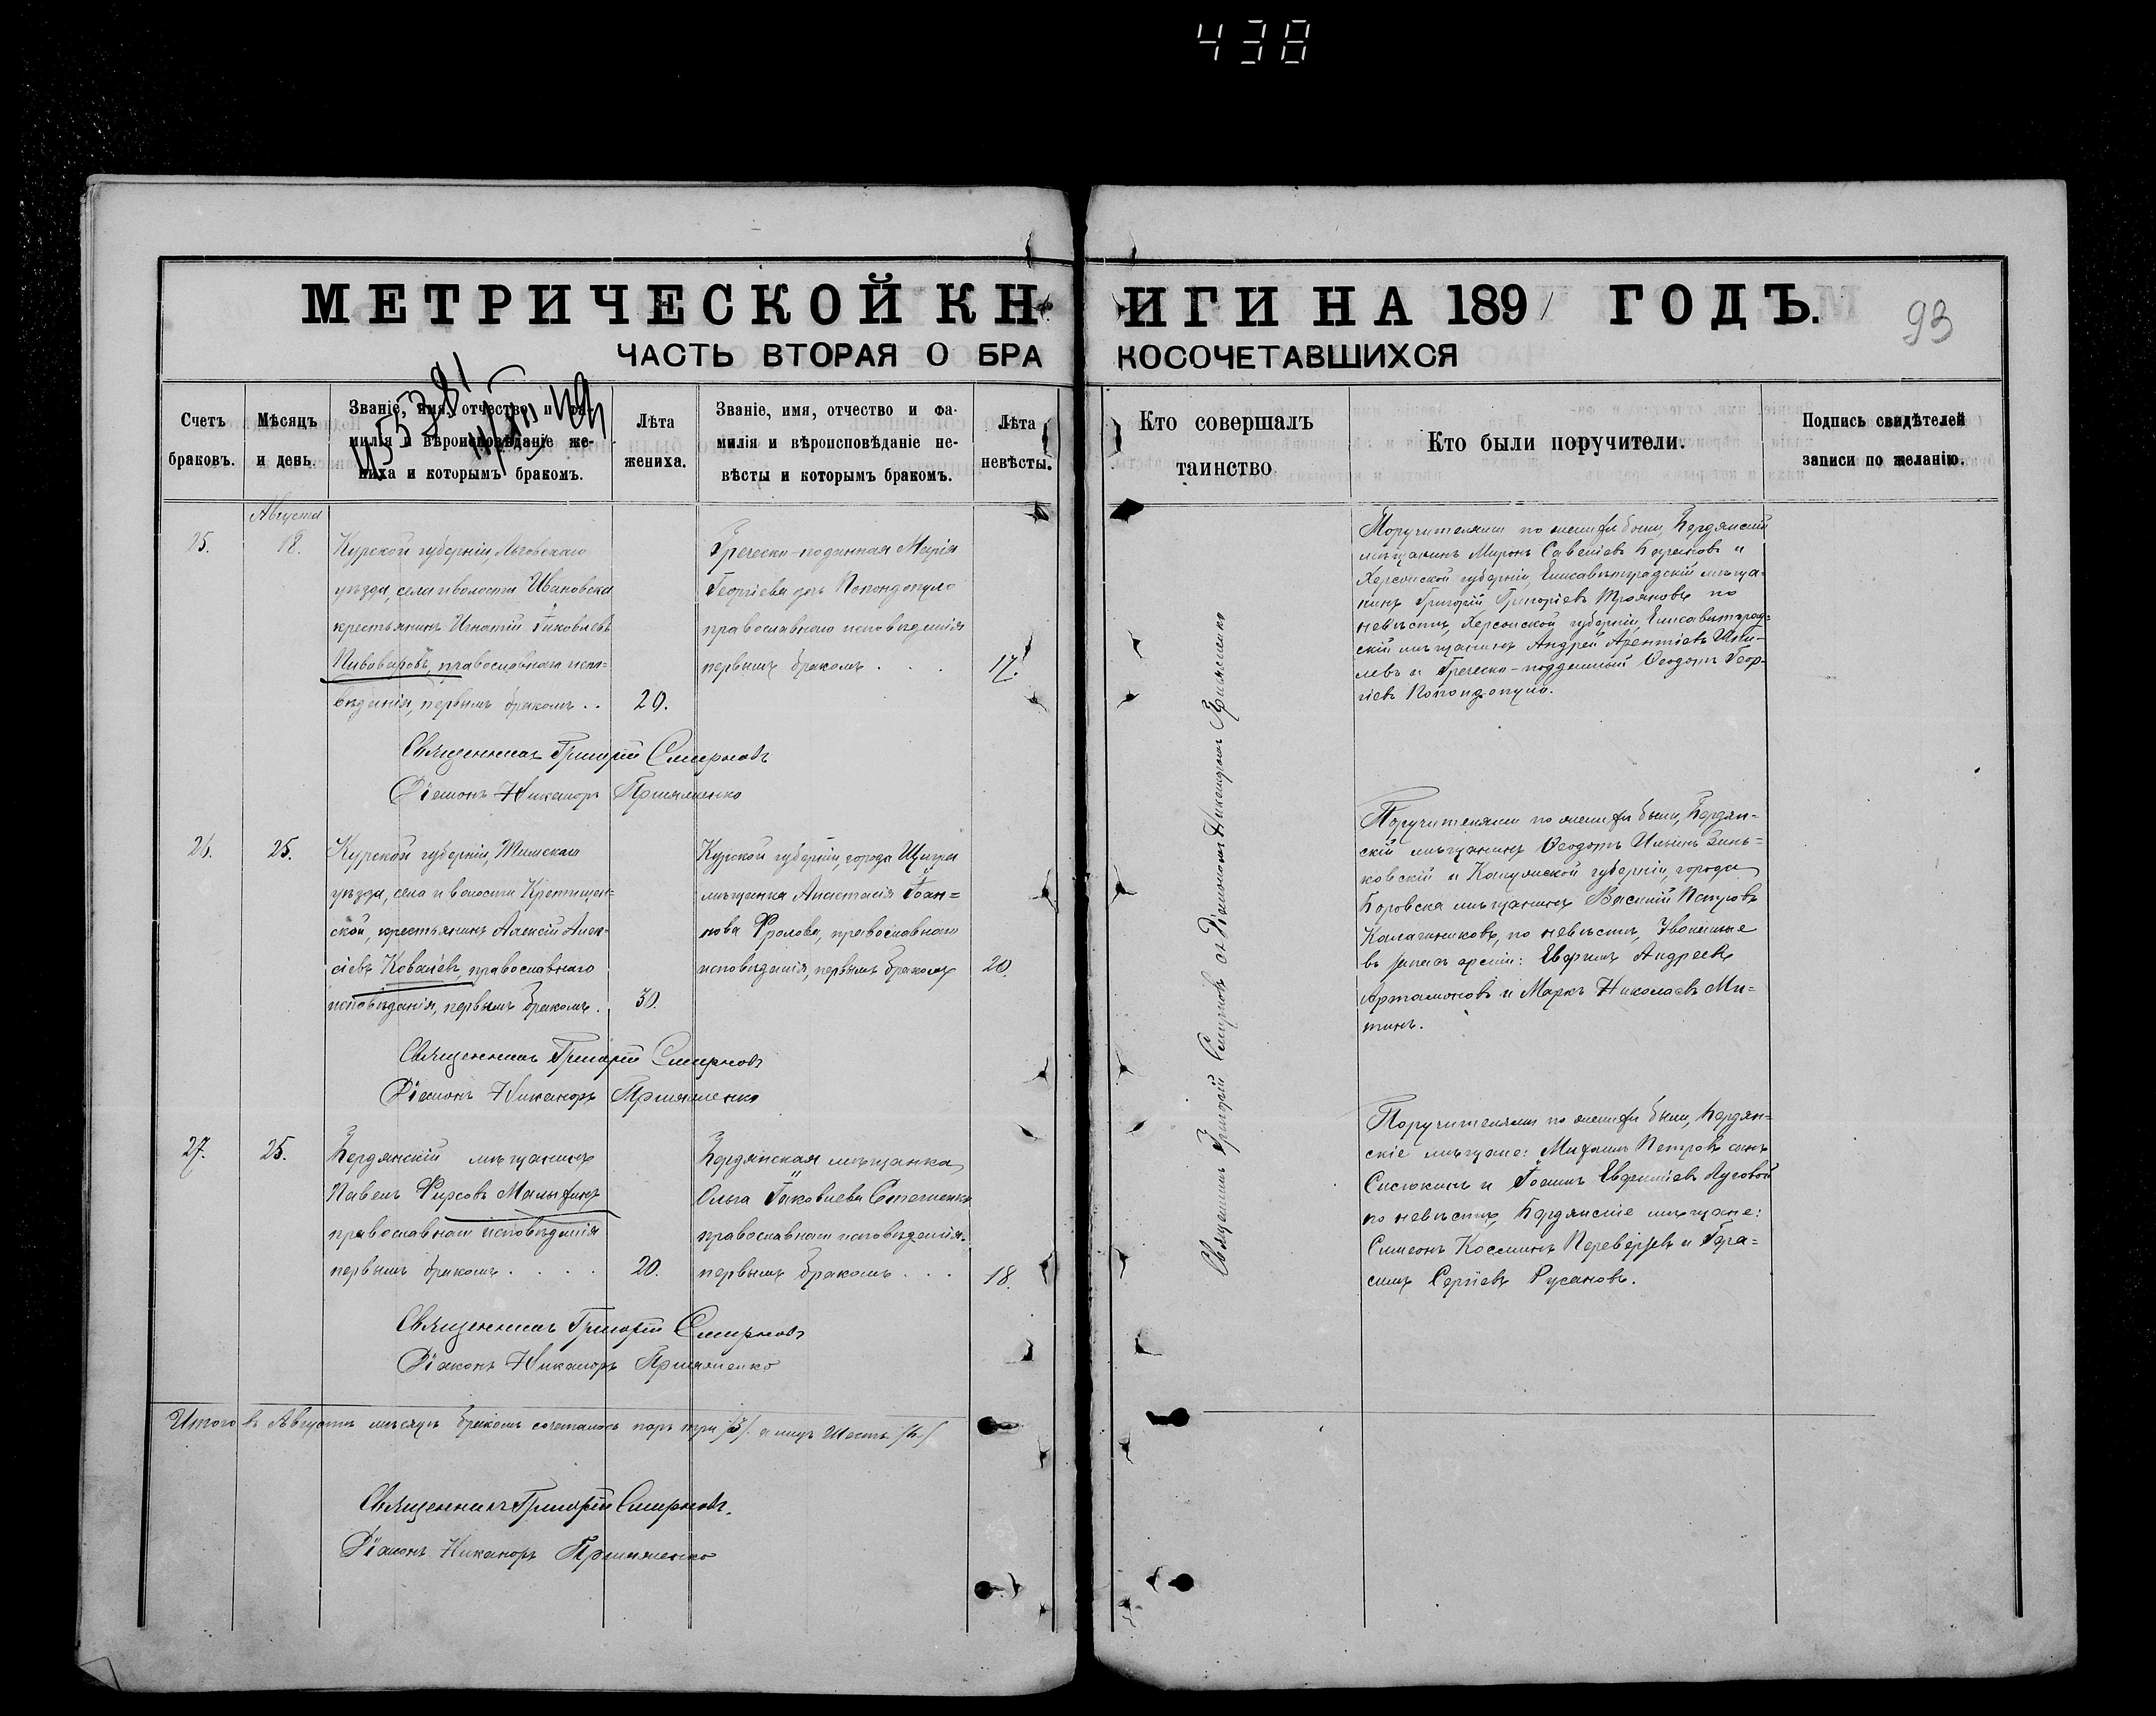 438
МЕТРИЧЕСКОЙ КНИГИ НА 1891 ГОДЪ.
93
ЧАСТЬ ВТОРАЯ О БРАКОСОЧЕТАВШИХСЯ
Счетъ браковъ.
Мѣсяцъ и день.
Званіе, имя, отчество и фа-
милія и вѣроисповѣданіе же-
ниха и которымъ бракомъ.
Лѣта
жениха.
Званіе, имя, отчество и фа-
милія и вѣроисповѣданіе не-
вѣсты и которымъ бракомъ.
Лѣта
невѣсты.
Кто совершалъ
таинство
Кто были поручители.
Подпись свидѣтелей
записи по желанію.
Августа
25.
18.
Курской губерніи, Льговскаго
уѣзда, села и волости Ивановска
крестьянинъ Игнатій Іаковлевъ
Пивоваровъ, православнаго испо-
вѣданія, первымъ бракомъ . .
20.
Греческо-поданная Марія
Георгіева дочь Попондопуло
православнаго исповѣданія
первымъ бракомъ . . .
17.
Поручителями по женихѣ были, Бердянскій
мѣщанинъ Миронъ Савеліевъ и
Херсонской губерніи, Елисаветградскій мѣща-
нинъ Григорій Григоріевъ Трояновъ по
невѣстѣ, Херсонской губерніи, Елисаветград-
скій мѣщанинъ Андрей
и Греческо-подданный Ѳеодотъ Геор-
гіевъ Попондопуло.
Священникъ Григорій Смирновъ
Діаконъ Никаноръ
26.
25.
Курской губерніи, Тимскаго
уѣзда, села и волости Крестищен-
ской, крестьянинъ Алексій Алек-
сіевъ Ковалевъ, православнаго
исповѣданія, первымъ бракомъ .
30.
Курской губерніи, города Щигры
мѣщанка Анастасія Іоан-
нова Фролова, православнаго
исповѣданія, первымъ бракомъ
20.
Поручителями по женихѣ были, Бердян-
скій мѣщанинъ Ѳеодотъ Ильинъ Зинь-
ковскій и Калужской губерніи, города
Боровска мѣщанинъ Василій Петровъ
Калашниковъ, по невѣстѣ,
въ запасъ арміи: Евфимъ Андреевъ
Артамоновъ и Маркъ Николаевъ Ми-
тинъ.
Священникъ Григорій Смирновъ
Діаконъ Никаноръ
27.
25.
Бердянскій мѣщанинъ
Павелъ Фирсовъ Малыхинъ
православнаго исповѣданія
первымъ бракомъ . . . .
20.
Бердянская мѣщанка
Ольга Іаковлева
православнаго исповѣданія.
первымъ бракомъ . . .
18.
Поручителями по женихѣ были, Бердян-
скіе мѣщане: Михаилъ Петровъ сынъ
и Іоаннъ Луговой
по невѣстѣ, Бердянскіе мѣщане:
Симеонъ Косминъ Переверзевъ и Гера-
симъ Сергіевъ Русановъ.
Священникъ Григорій Смирновъ
Діаконъ Никаноръ
Священникъ Григорій Смирновъ съ Діакономъ Никаноромъ
Итого въ Августѣ мѣсяцѣ бракомъ сочеталось паръ три /3/. а лицъ шесть /6/
Священникъ Григорій Смирновъ.
Діаконъ Никаноръ